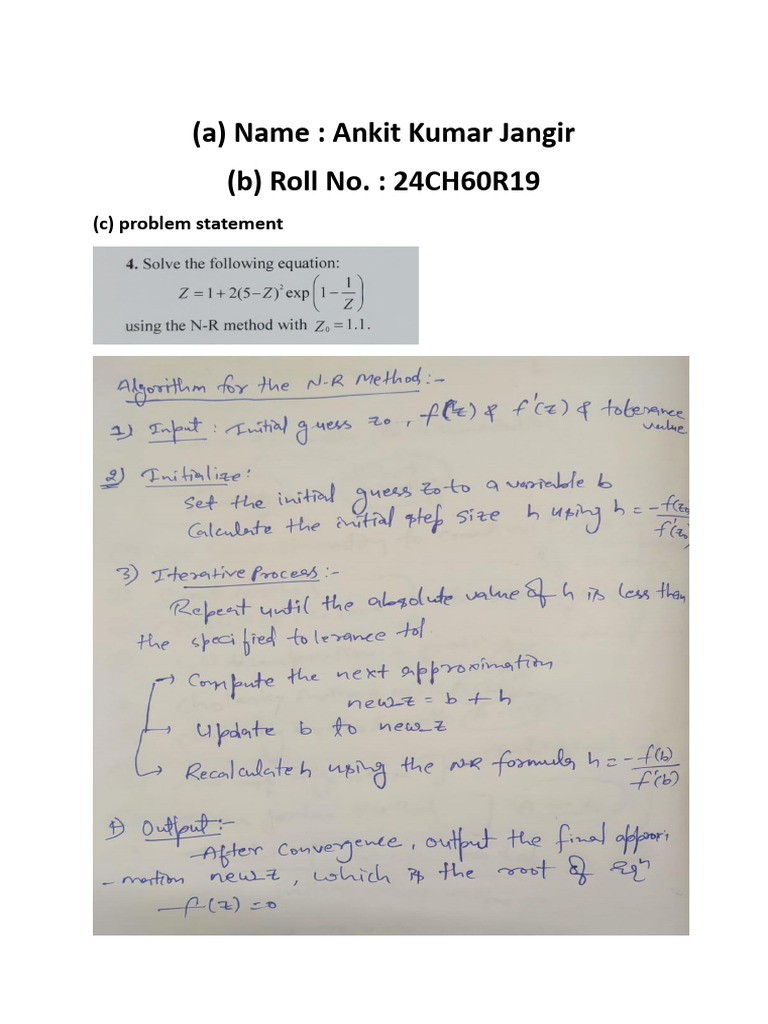 (a) Name : Ankit Kumar Jangir
(b) Roll No. : 24CH60R19
(c) problem statement
4. Solve the following equation:
Z = 1 + 2(5 − Z)² exp(1 − 1/Z)
using the N-R method with Z₀ = 1.1.
Algorithm for the N-R Method:-
1) Input : Initial guess z₀, f(z) & f'(z) & tolerance
value
2) Initialize:
Set the initial guess z₀ to a variable b
Calculate the initial step size h using h = -f(z₀)/f'(z₀)
3) Iterative Process:-
Repeat until the absolute value of h is less than
the specified tolerance tol.
→ Compute the next approximation
new_z = b + h
→ Update b to new_z
→ Recalculate h using the NR formula h = -f(b)/f'(b)
4) Output:-
After convergence, output the final approxi
-mation new_z, which is the root of eqⁿ
f(z) = 0